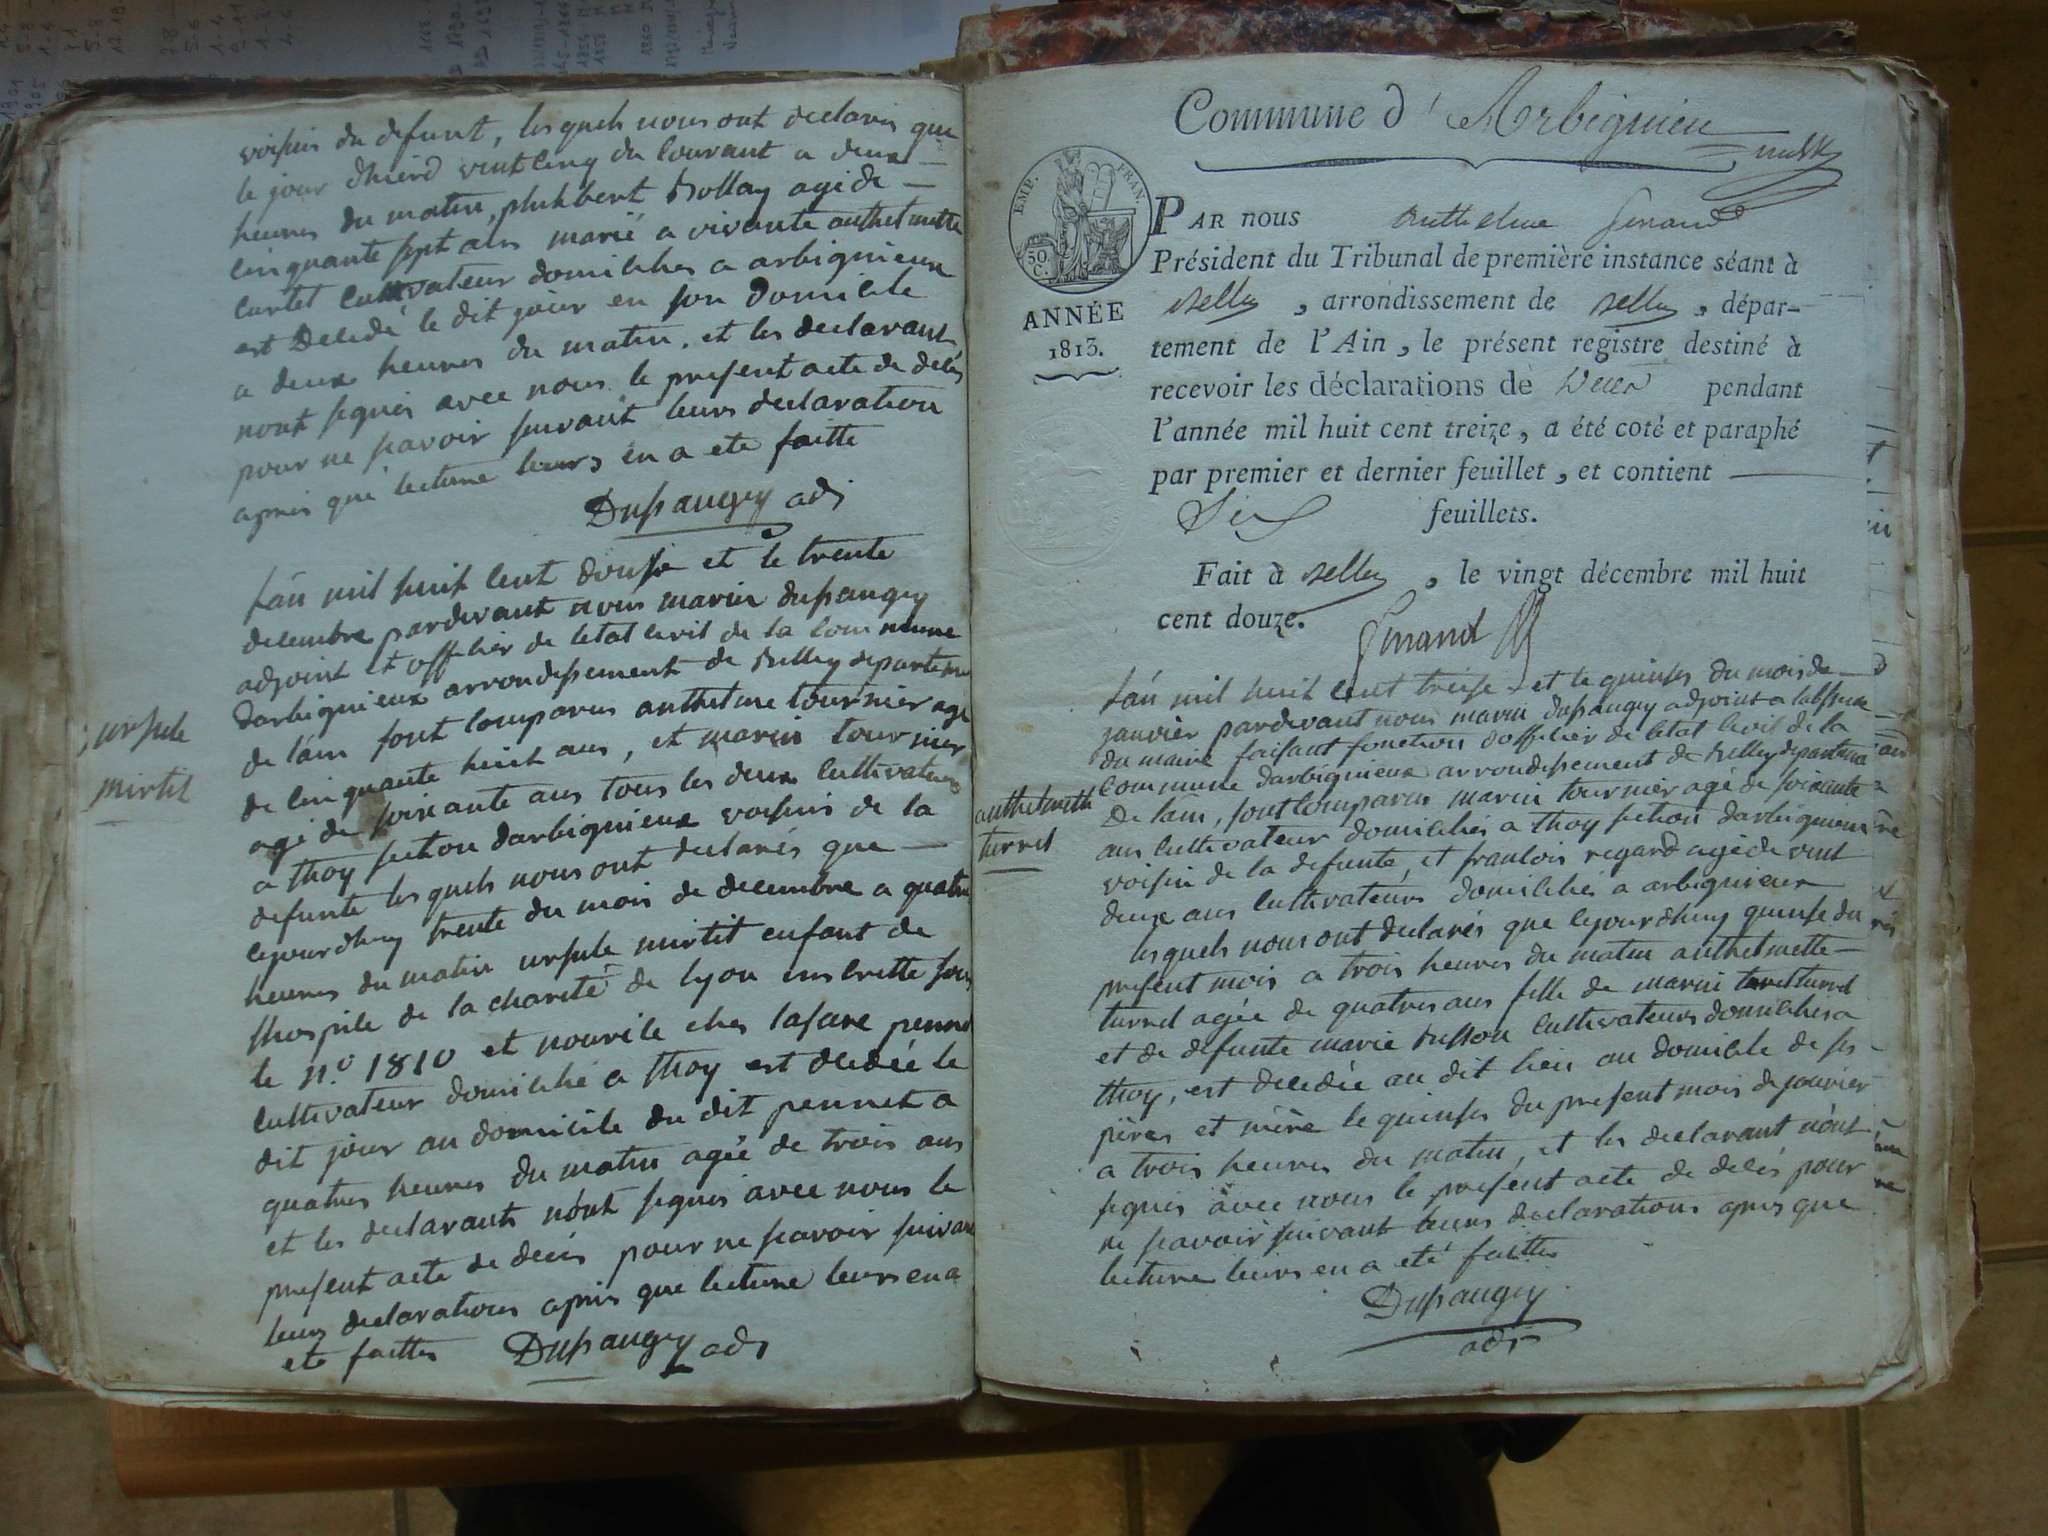 voisins du defunt, les quels nous ont declarés que
le jour dhierd vintcinq du courant a deux
heures du matin, philibert Bollay agé de
cinquante sept ans marié a vivante anthelmette
cartet cultivateur domiciliés a arbignieux
est Decedé le dit jour en son Domicile
a deux heures du matin, et les declarant
nont signés avec nous le present acte de décés
pour ne savoir suivant leurs declaration
aprés que lecture leurs en a ete faitte
Dupraugey adj
ursule
mirtil
Lán mil huit cent douse et le trente
decembre pardevant nous marin dupraugey
adjoint et officier de letat civil de la commune
darbignieux arrondissement de Belley departeme
de láin sont comparus anthelme tournier age
de cinquante huit ans, et marin tournier
agé de soixante ans tous les deux cultivateurs
a thoy section darbignieux voisins de la
defunte les quels nous ont declarés que
cejourdhuy trente du mois de decembre a quatre
heures du matin ursule mirtil enfant de
lhospice de la charité de lyon inscritte sous
le n.º 1810 et nourile ches lasare pennet
cultivateur domicilié a thoy est decedée le
dit jour au domicile du dit pennet a
quatres heures du matin agée de trois ans
et les declarants nónt signés avec nous le
present acte de decés pour ne savoir suivant
leurs declarations aprés que lecture leurs en a
ete faittes Dupraugey adj
Commune d' Arbignieu
EMP. FRAN.
50 C.
ANNÉE
1813.
PAR nous Anthelme Genand
Président du Tribunal de première instance séant à
Belley, arrondissement de Belley, dépar-
tement de l'Ain, le présent registre destiné à
recevoir les déclarations de Décès pendant
l'année mil huit cent treize, a été coté et paraphé
par premier et dernier feuillet, et contient
Six feuillets.
Fait à Belley, le vingt décembre mil huit
cent douze.
Genand
anthelmette
turrel
Lán mil huit cent treise et le quinse du mois de
janvier pardevant nous marin dupraugey adjoint a labsence
du maire faisant fonction dofficier de letat civil de la
commune darbignieux arrondissement de Belley departeme
De láin, sont comparus marin tournier agé de soixante
ans cultivateur domiciliés a thoy section darbignieux
voisin de la defunte, et francois regard agé de vint
deux ans cultivateurs domicilié a arbignieux
les quels nous ont declarés que cejourdhuy quinse du
present mois a trois heures du matin anthelmette
turrel agée de quatres ans fille de marin turrel
et de defunte marie Busson cultivateurs domiciliés a
thoy, est decedée au dit lieu au domicile de ses
péres et mére le quinses du present mois de janvier
a trois heures du matin, et les declarant nónt
signés avec nous le present acte de decés pour
ne savoir suivant leurs declarations aprés que
lecture leurs en a eté faittes
Dupraugey
adj